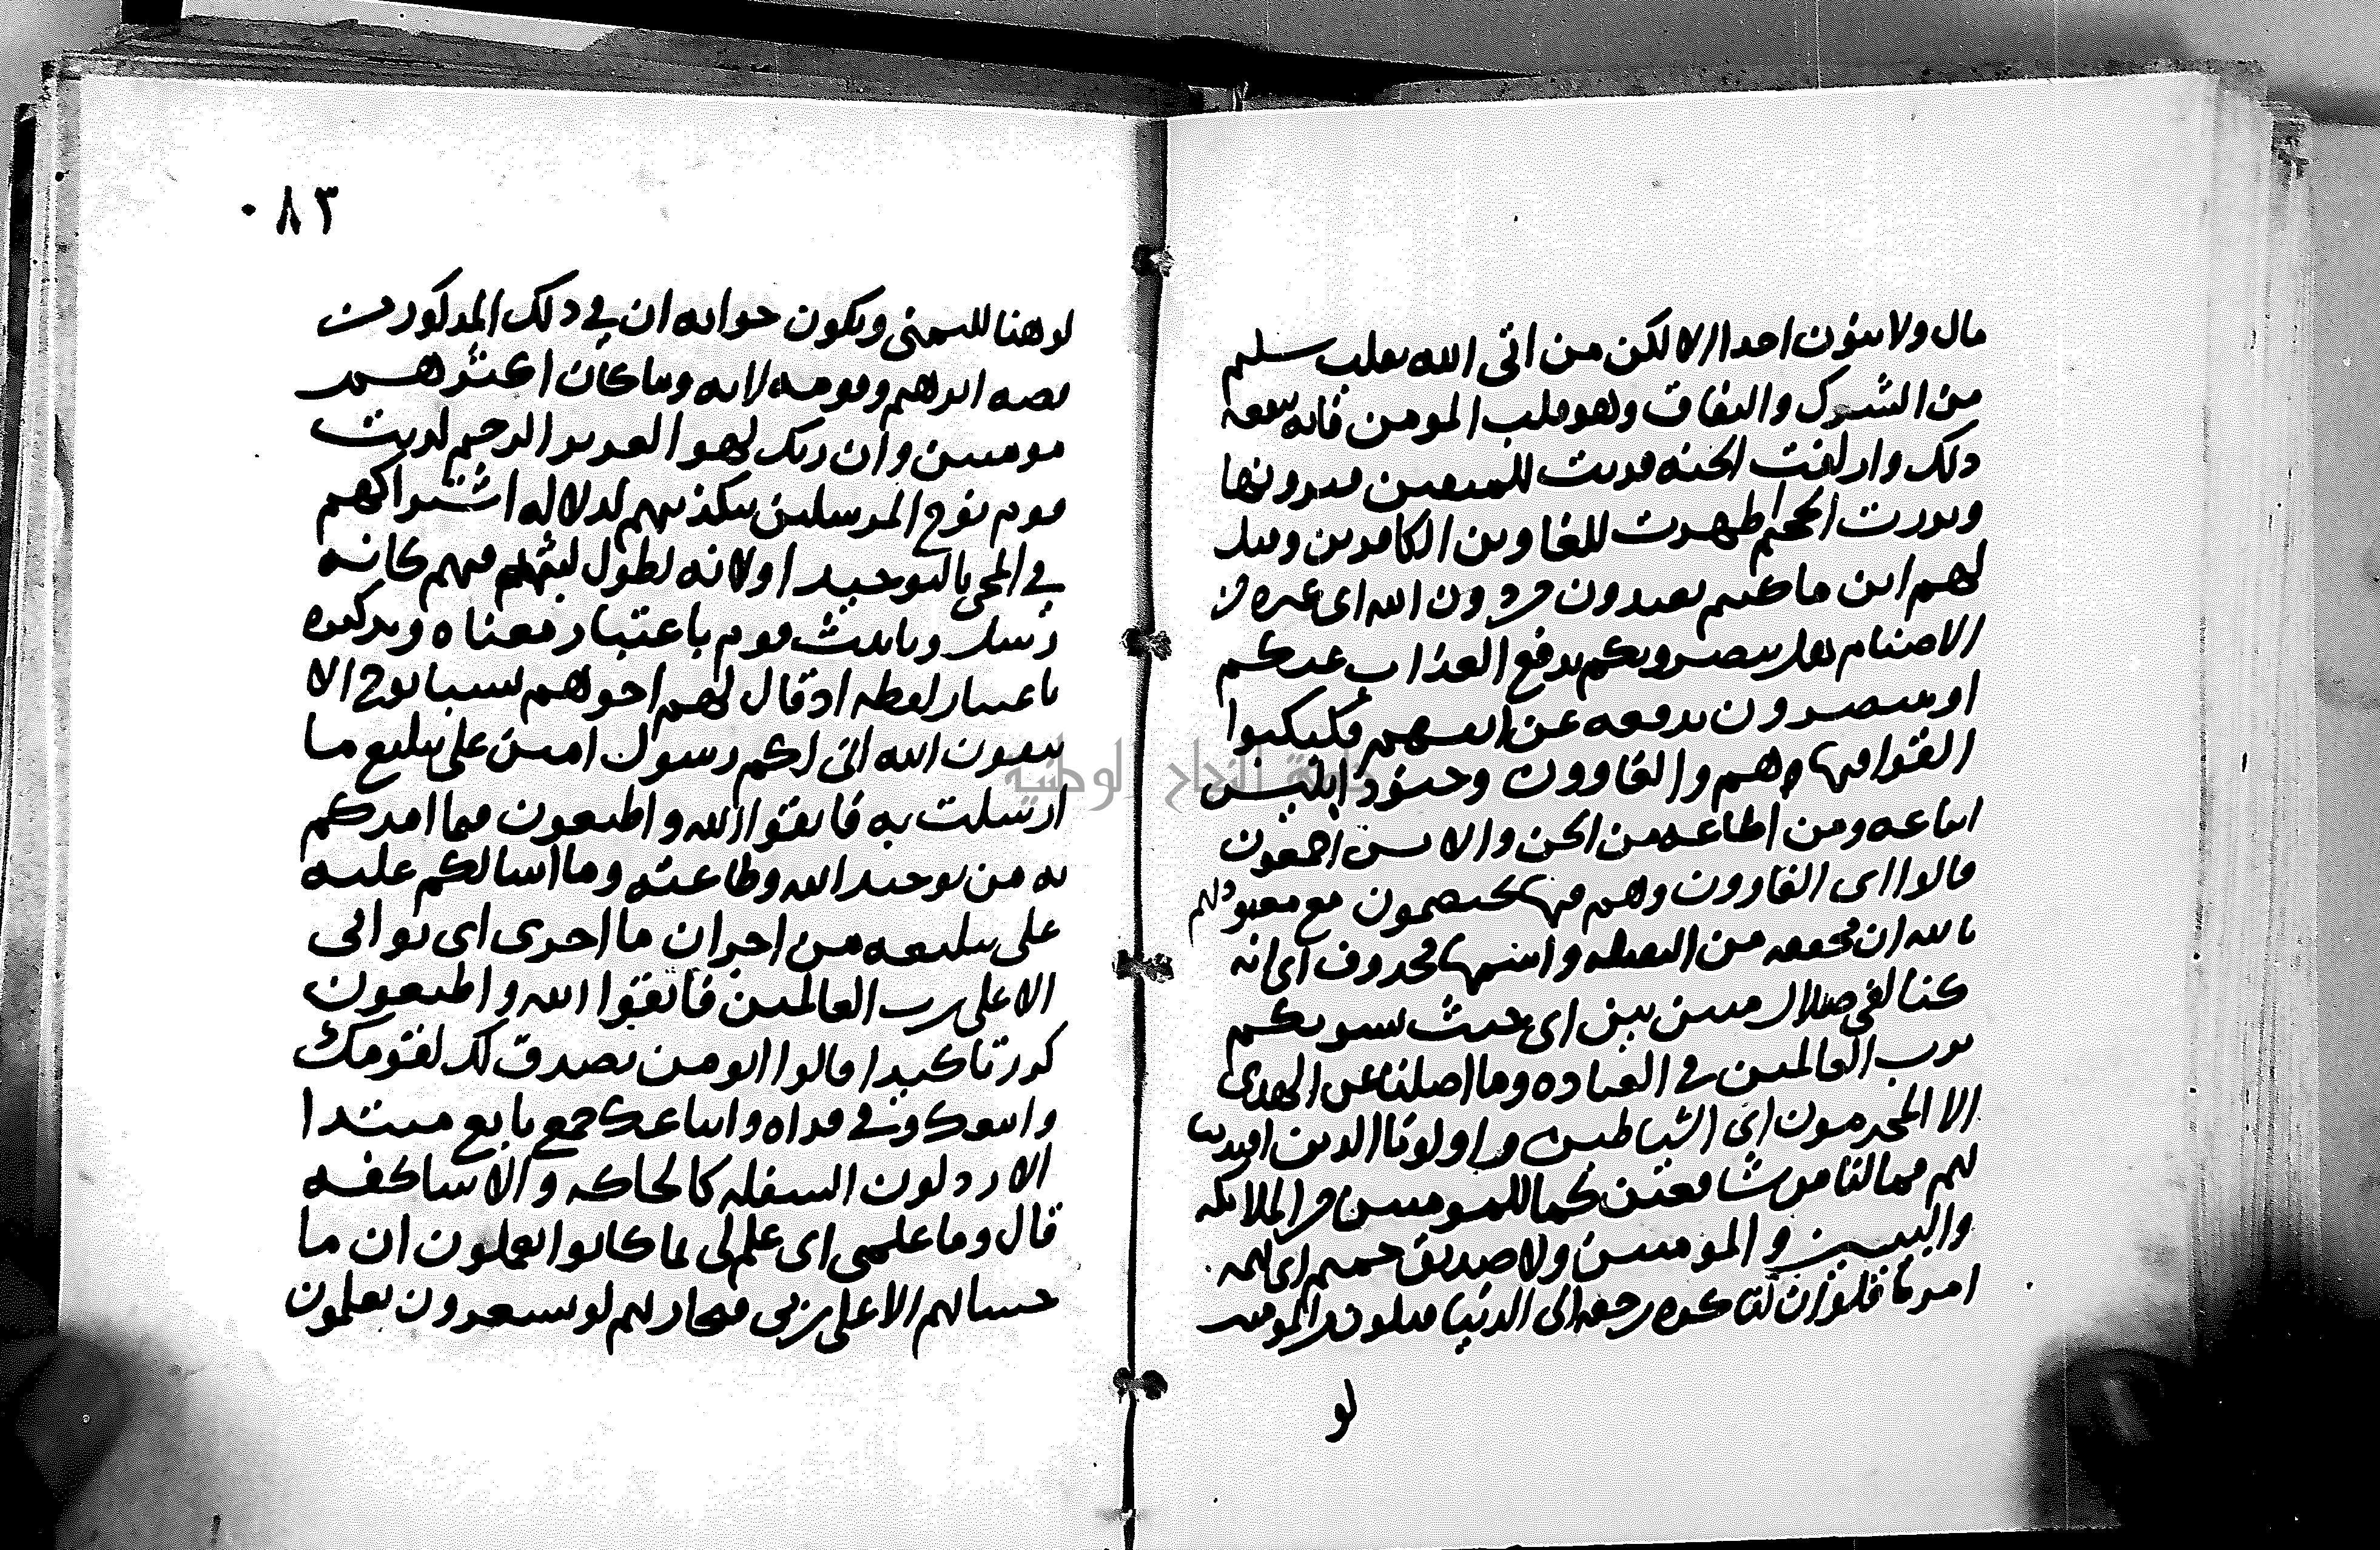 مال ولا بنون احدا الا لكن من اتى الله بقلب سليم
من الشرك والنفاق وهو قلب المومن فانه ينفعه
ذلك وازلفت الجنه قربت للمتقين فيرونها
وبرزت الجحيم اظهرت للغاوين الكافرين وقيل
لهم اين ما كنتم تعبدون من دون الله اى غيره من
الاصنام هل ينصرونكم بدفع العذاب عنكم
او ينتصرون بدفعه عن انفسهم فكبكبوا
القوا فيها هم والغاوون وجنود ابليس
اتباعه ومن اطاعه من الجن والانس اجمعون
قالوا اى الغاوون وهم فيها يختصمون مع معبوديهم
تالله ان مخففه من الثقيله واسمها محذوف اى انه
كنا لفي ضلال مبين بين اى حيث نسويكم
برب العالمين في العباده وما اضلنا عن الهدى
الا المجرمون اى الشياطين او اولونا الذين اقتدينا
بهم فما لنا من شافعين كما للمومنين من الملائكه
والنبيين والمومنين ولا صديق حميم اى يهمه
امرنا فلو ان لنا كره رجعه الى الدنيا فنكون من المومنين
لو
٠٨٣
لو هنا للتمنى ونكون جوابه ان في ذلك المذكور من
قصه ابرهيم وقومه لايه وما كان اكثرهم
مومنين وان ربك لهو العزيز الرحيم كذبت
قوم نوح المرسلين بتكذيبهم له لدلاله اشتراكهم
في المجى بالتوحيد اولانه لطول لبثهم فيهم كانه
رسل وتانيث قوم باعتبار معناه وتذكيره
باعتبار لفظه اذ قال لهم اخوهم نسبا نوح الا
تتقون الله انى لكم رسول امين على تبليغ ما
ارسلت به فاتقوا الله واطيعون فيما امركم
به من توحيد الله وطاعته وما اسالكم عليه
على تبليغه من اجر ان ما اجرى اى ثوابى
الا على رب العالمين فاتقوا الله واطيعون
كرر تاكيدا قالوا انومن نصدق لك لقومك
واتبعك وفي قراه واتباعك جمع تابع مبتدا
الارذلون السفله كالحاكه والاساكفه
قال وما علمى اى علم لى بما كانوا يعملون ان ما
حسابهم الا على ربى فيجازيهم لو تشعرون تعلمون